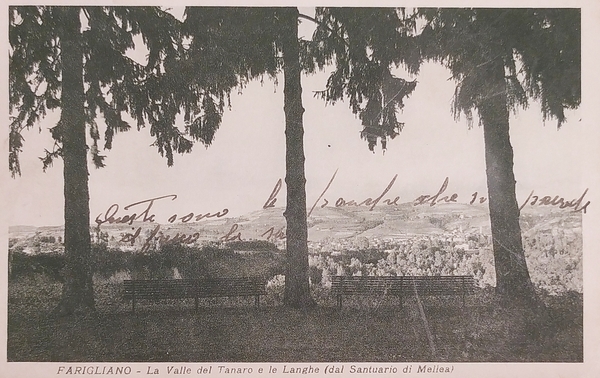 Queste sono le panche che si
FARIGLIANO - La Valle del Tanaro e le Langhe (dal Santuario di Mellea)